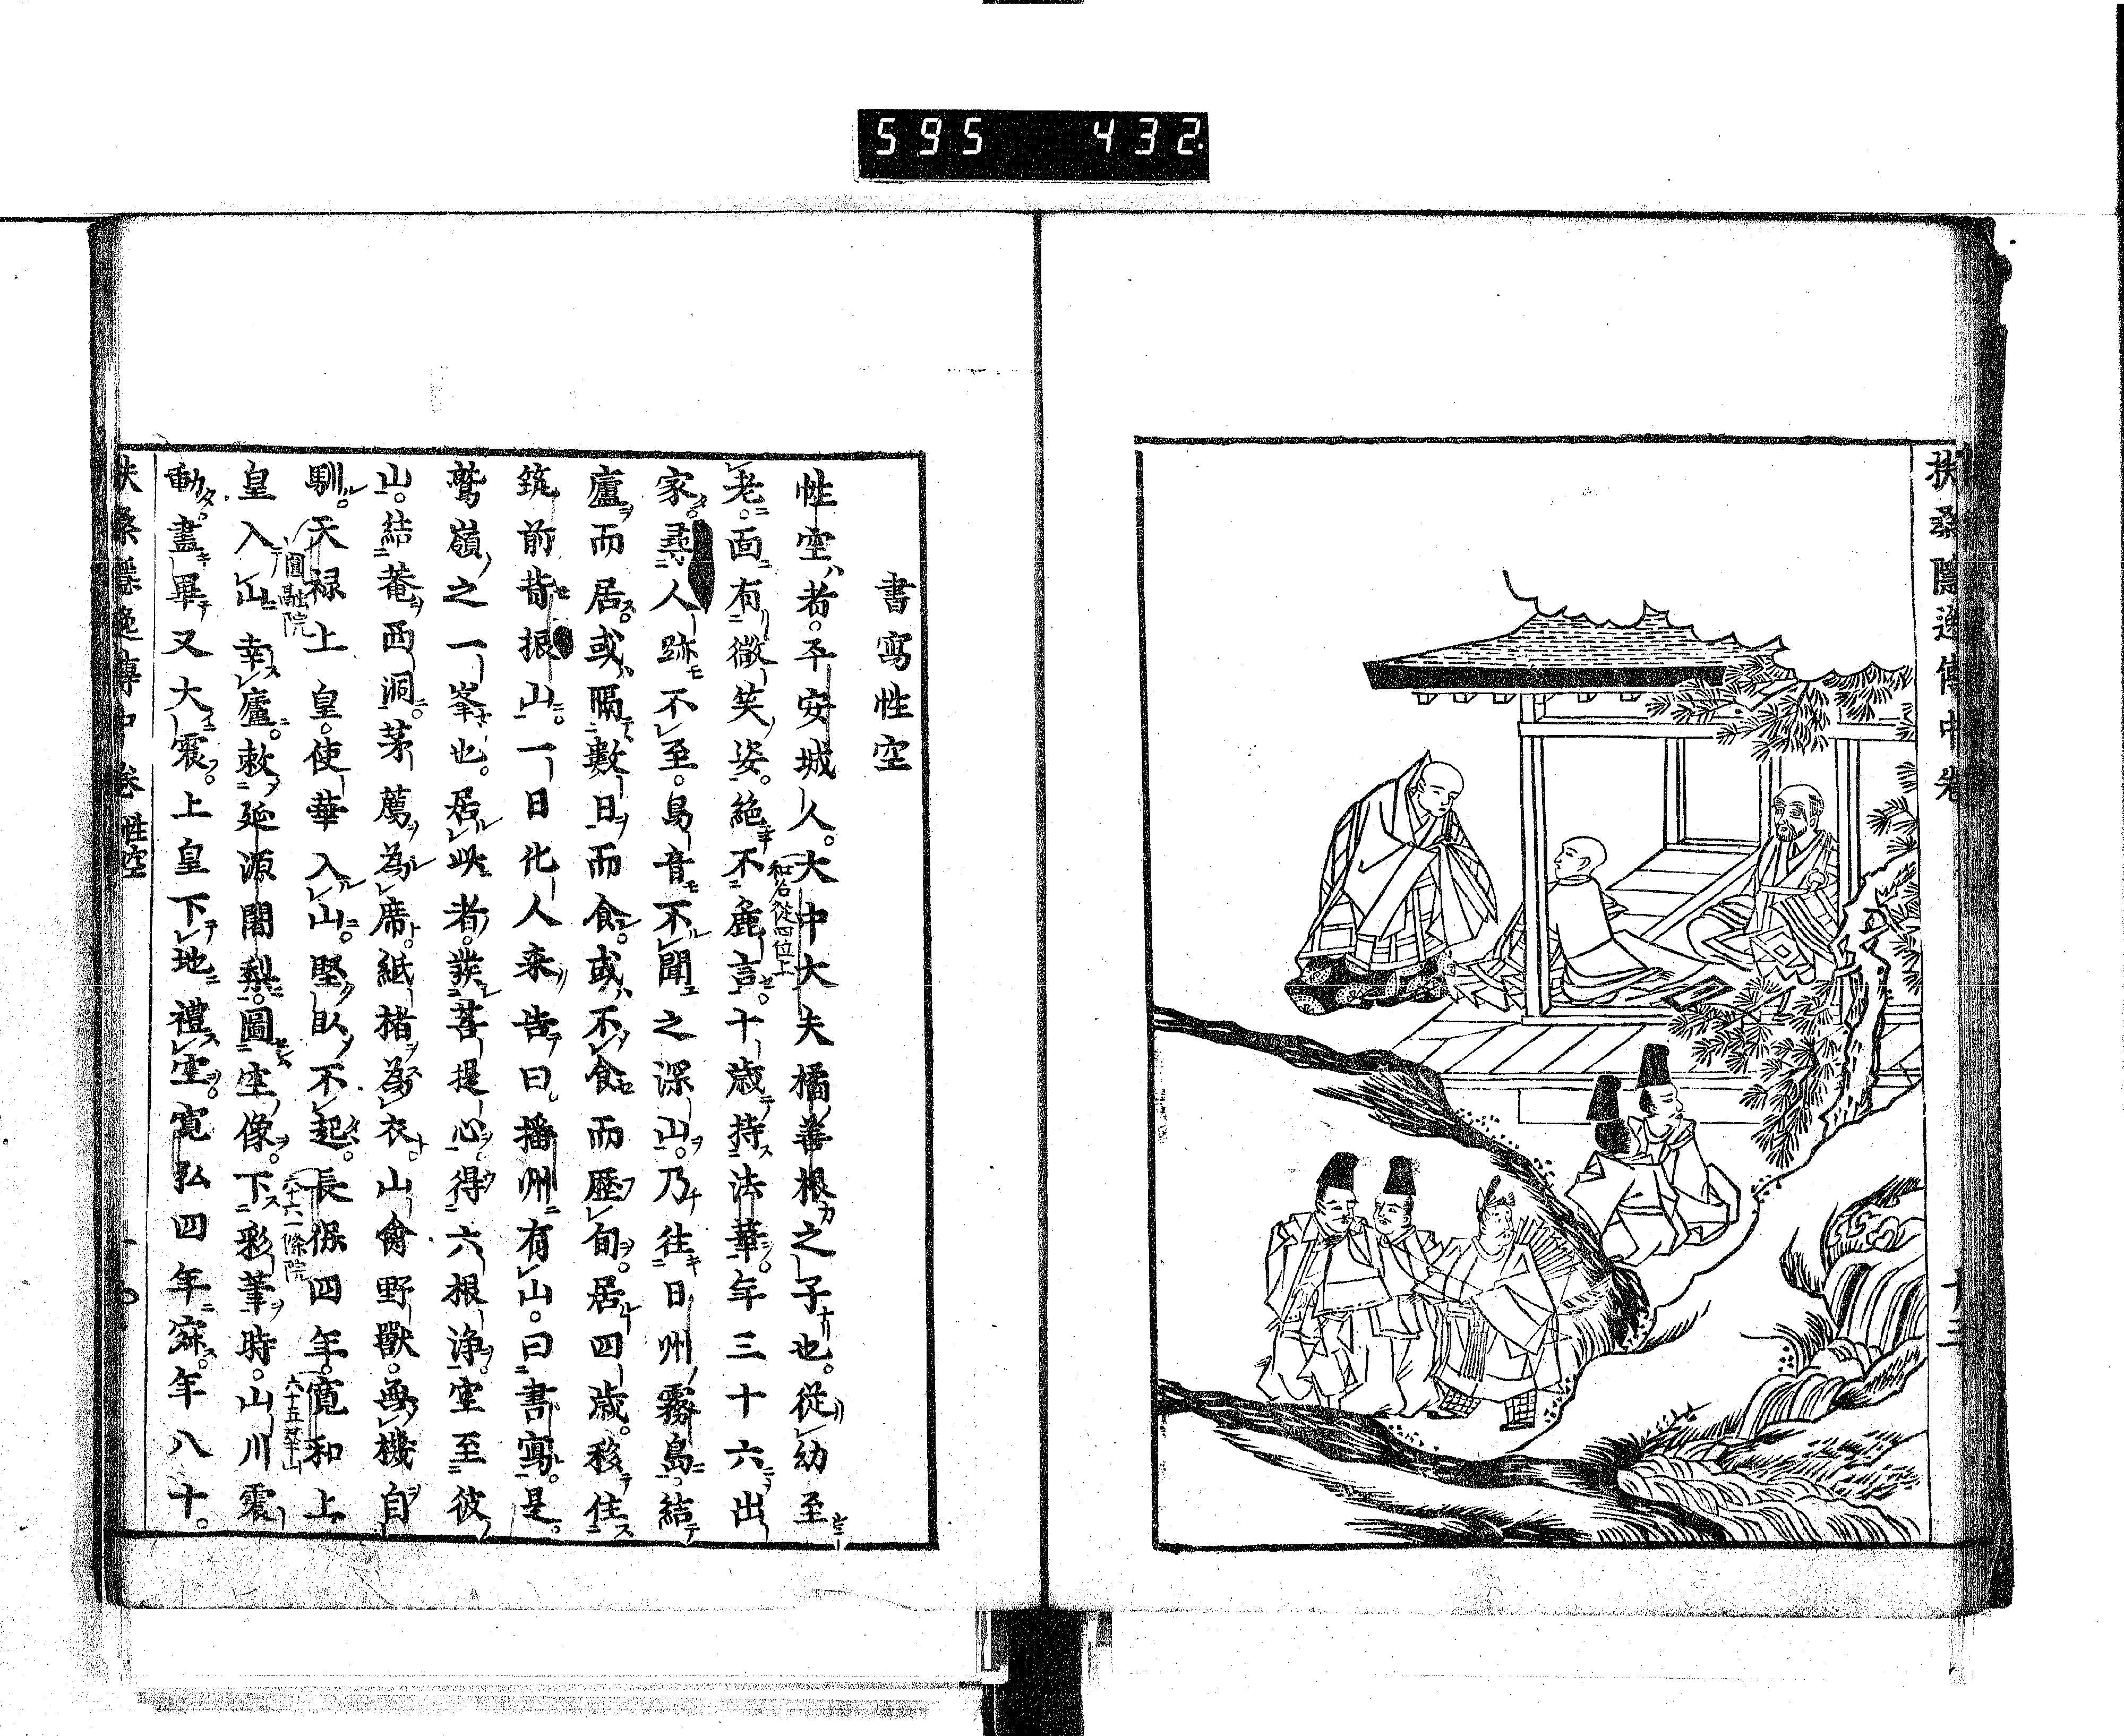 595 432
扶桑隱逸傳中卷 十三
書寫性空
性空者。平安城人。大中大夫橘善根之子也。從幼至
和名從四位上
老。面有微笑姿。絶不麁言。十歳持法華。年三十六出
家。尋人跡不至。鳥音不聞之深山。乃往日州霧島。結
廬而居。或隔數日而食。或不食而歷旬。居四歳。移住
筑前背振山。一日化人來告曰。播州有山。曰書寫。是
鷲嶺之一峯也。居此者。發菩提心得六根淨。空至彼
山。結菴西洞。茅薦為席。紙楮為衣。山禽野獸。無機自
馴。天禄上皇。使華入山。堅臥不起。長保四年。寛和上
圓融院
六十六一條院
六十五花山
皇入山幸廬。敕延源闍梨。圖空像。下彩筆時。山川震
動。畫畢又大震。上皇下地禮空。寛弘四年寂。年八十。
扶桑隱逸傳中卷 性空 一〇